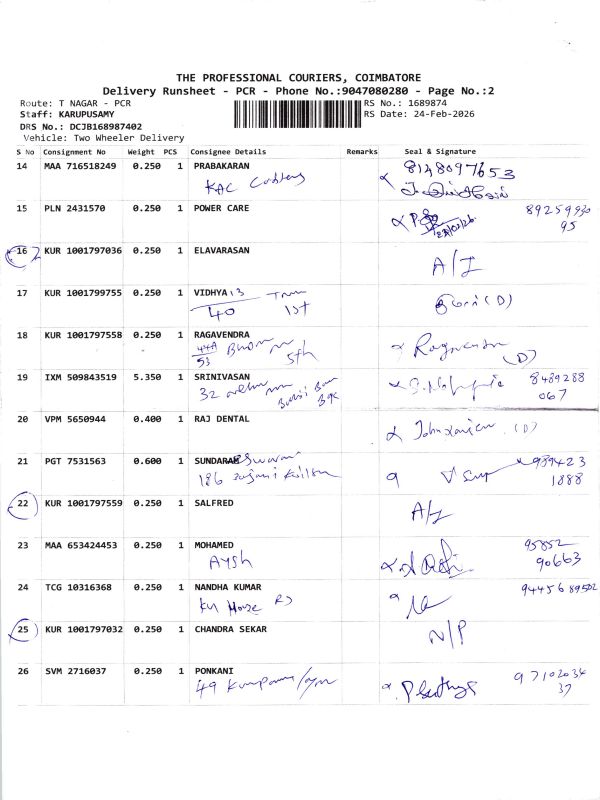 THE PROFESSIONAL COURIERS, COIMBATORE
Delivery Runsheet - PCR - Phone No.:9047080280 - Page No.:2
Route: T NAGAR - PCR
RS No.: 1689874
Staff: KARUPUSAMY
RS Date: 24-Feb-2026
DRS No.: DCJB168987402
Vehicle: Two Wheeler Delivery
S No Consignment No Weight PCS Consignee Details Remarks Seal & Signature
14 MAA 716518249 0.250 1 PRABAKARAN 8148097653
KAC
15 PLN 2431570 0.250 1 POWER CARE 89259930
95
16 KUR 1001797036 0.250 1 ELAVARASAN
A/I
17 KUR 1001799755 0.250 1 VIDHYA 13
40 1st (D)
18 KUR 1001797558 0.250 1 RAGAVENDRA
44A
53 5th (D)
19 IXM 509843519 5.350 1 SRINIVASAN 8489288
32 067
20 VPM 5650944 0.400 1 RAJ DENTAL
(D)
21 PGT 7531563 0.600 1 SUNDARAESwarari 989423
186 1888
22 KUR 1001797559 0.250 1 SALFRED
A/I
23 MAA 653424453 0.250 1 MOHAMED 95852
Aysh 90663
24 TCG 10316368 0.250 1 NANDHA KUMAR
KU House
25 KUR 1001797032 0.250 1 CHANDRA SEKAR
N/P
26 SVM 2716037 0.250 1 PONKANI 97102034
49 37